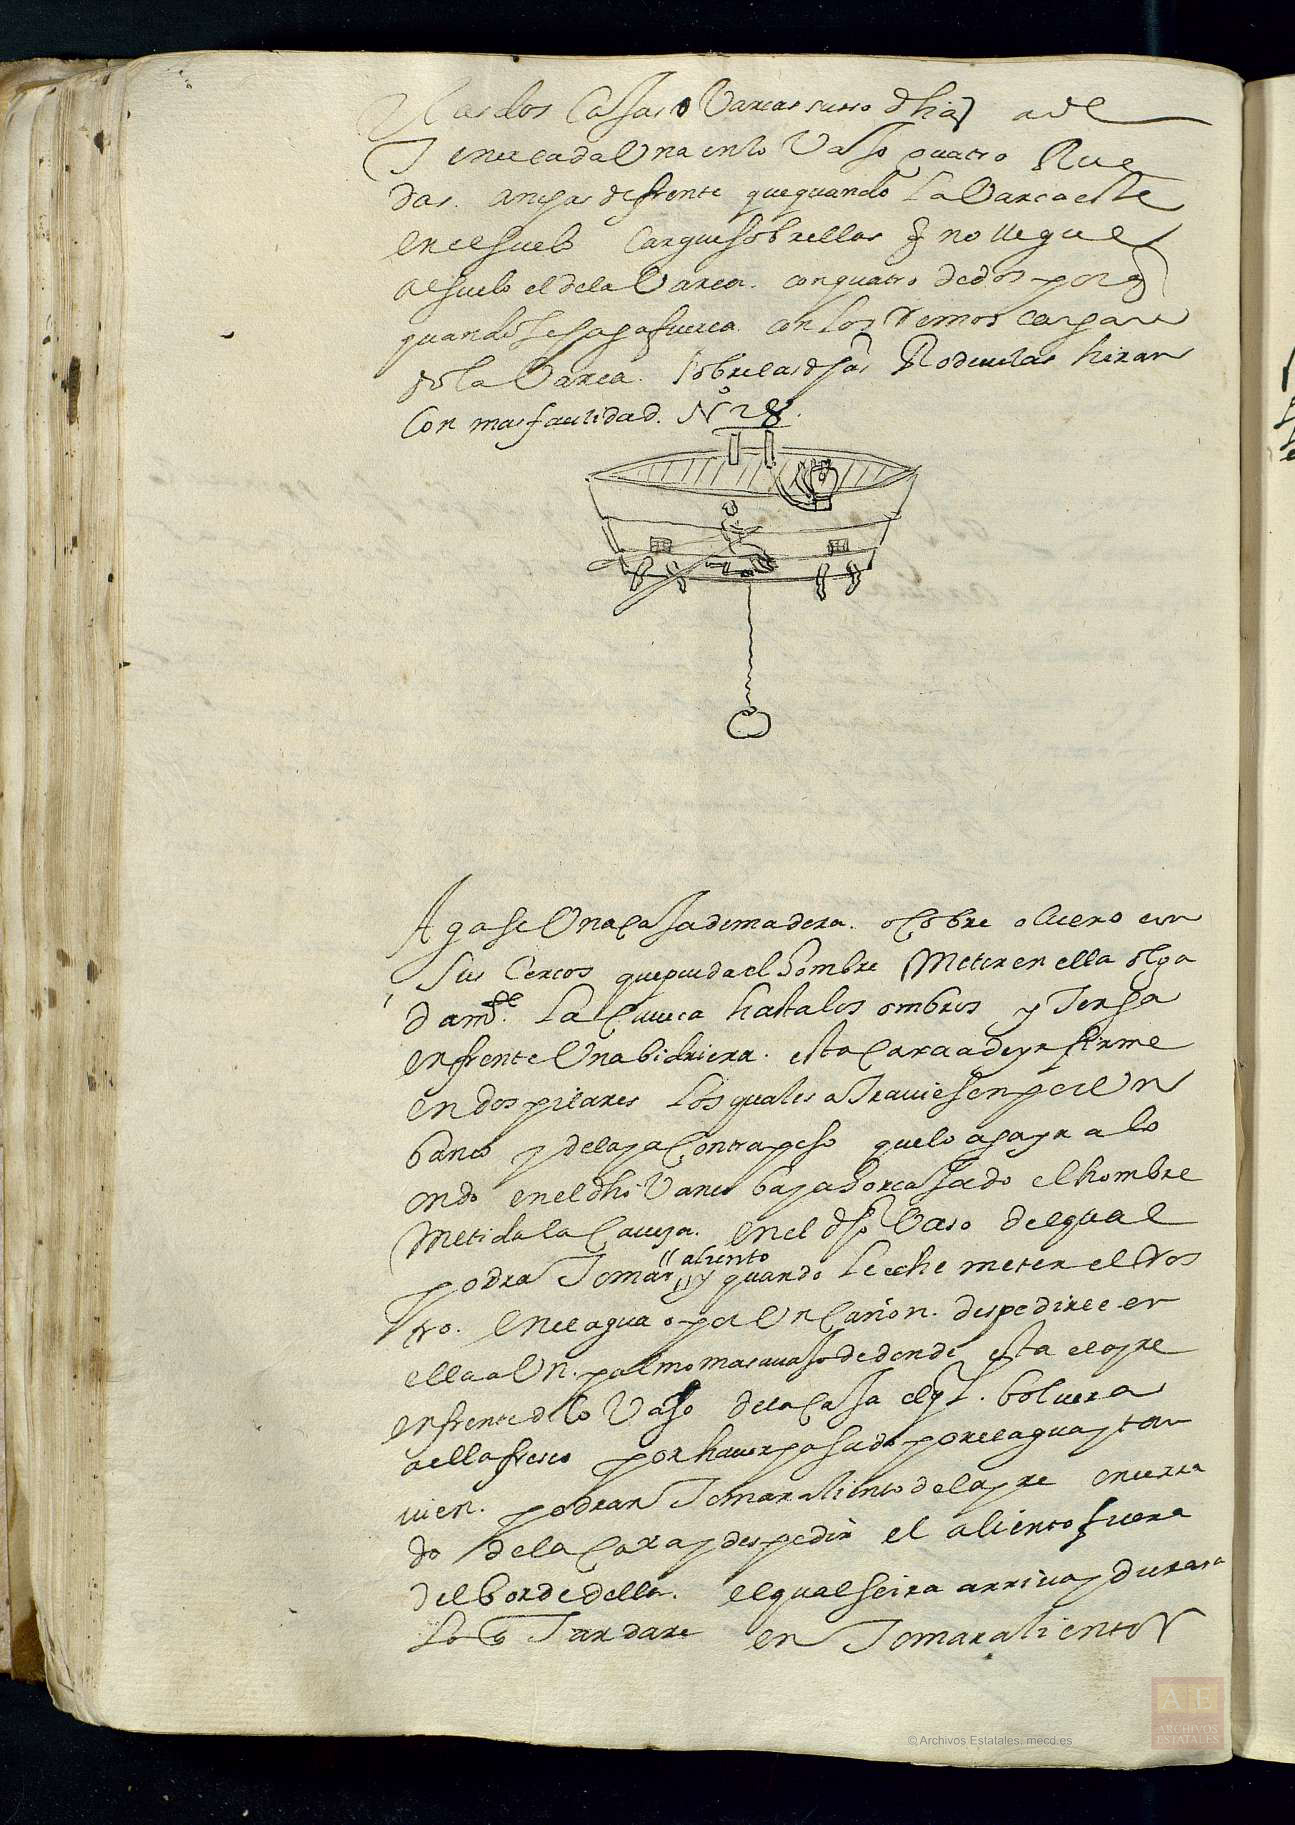 Las dos Casas o Varcas suso dhas a de
Tener cada Una en lo Vaso quatro Rue
das. anchas de frente que quando la Varca este
en el suelo Cargue sobrellas q no llegue
al suelo el de la Varca. con quatro dedos por q
quando se haga fuerca con los Remos cargan
do la Varca. sobre las dhas Rodeuelas hiran
Con mas facilidad. Nº 28.
Agase Una Casa de madera. o Cobre o Cuero con
sus Cercos que pueda el hombre Meter en ella olga
damte. La Caueca hasta los ombros y Tenga
en frente Una bidriera. esta Caxa a de yr firme
en dos pilares Los quales atrauiesen por Un
banco y de la contrapeso que lo aga yr a lo
ondo en el dho Vanco baja horcajado el hombre
Metida la Caueza. en el dho Vaso del qual
podra Tomar aliento y quando le eche meter el Ros
tro. en el agua o por Un Cañon. despedirle en
ella a Un. palmo mas uajo de donde esta el ayre
en frente de lo Vajo de la Casa el ql. boluera
a ella fresco por hauer pasado por el agua y tan
uien. podran Tomar aliento del ayre encerra
do de la Caxa y despedir el aliento fuera
del borde della. el qual se ira arriua y durara
lo q Tardare en Tomar aliento
© Archivos Estatales, mecd.es
AE
ARCHIVOS
ESTATALES